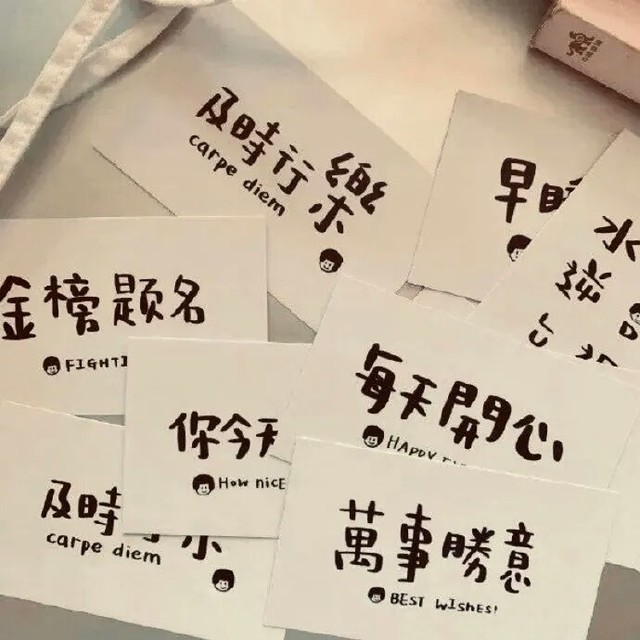 及時行樂
carpe diem
早睡
水
逆
金榜题名
FIGHTI
每天開心
HAPPY
你今天
How nice
及時
樂
carpe diem
萬事勝意
BEST WISHES!